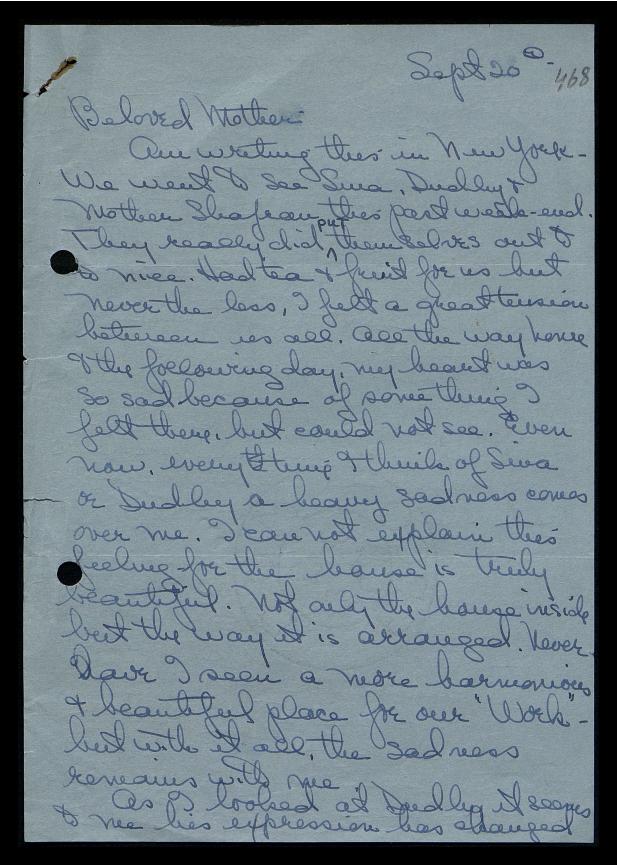 Sept 20 ①-
468
Beloved Mother:
Am writing this in New York -
We went to see Siva, Dudley &
Mother Shafran this past week-end.
They really did put themselves out to
to nice. Had tea & fruit for us but
never the less, I felt a great tension
between us all. All the way home
& the following day, my heart was
so sad because of something I
felt there, but could not see. Even
now, everytime I think of Siva
or Dudley a heavy sadness comes
over me. I can not explain this
feeling for the house is truly
beautiful. Not only the house inside
but the way it is arranged. Never
have I seen a more harmonious
& beautiful place for our "Work" -
but with it all, the sadness
remains with me
As I looked at Dudley it seems
to me his expression has changed